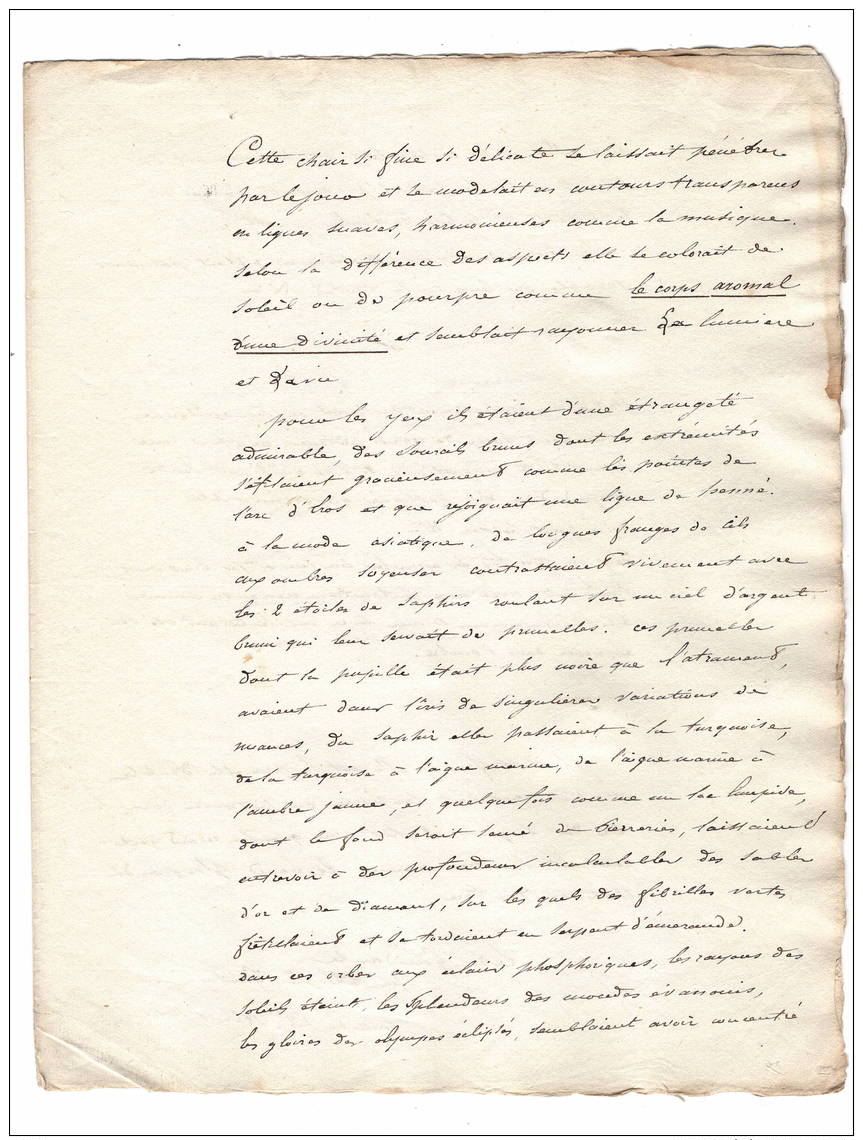 Cette chair si fine si délicate se laissait pénétrer
par le jour et se modelait en contours transparens
en lignes suaves, harmonieuses comme la musique.
selon la différence des aspects elle se colorait de
soleil ou de pourpre comme le corps aromal
d'une divinité et semblait rayonner La lumiere
et La vie
pour les yeux ils étaient d'une étrangeté
admirable, des sourcils bruns dont les extrémités
s'éfilaient gracieusement comme les pointes de
l'arc d'Eros et que rejoignait une ligne de henné.
à la mode asiatique. de longues franges de cils
aux ombres soyeuses contrastaient vivement avec
les 2 étoiles de saphirs roulant sur un ciel d'argent
bruni qui leur servait de prunelles. ces prunelles
dont la pupille était plus noire que l'atrament,
avaient dans l'iris de singulieres variations de
nuances, du saphir elles passaient à la turquoise,
de la turquoise à l'aigue marine, de l'aigue marine à
l'ambre jaune, et quelquefois comme un lac limpide,
dont le fond serait semé de Pierreries, laissaient
entrevoir à des profondeurs incalculables des sables
d'or et de diamant, sur les quels des fibrilles vertes
frétillaient et se tordaient en serpent d'émeraude.
dans ces orbes aux éclairs phosphoriques, les rayons des
soleils éteints, les splendeurs des mondes évanouis,
les gloires des olympes éclipsés, semblaient avoir concentré